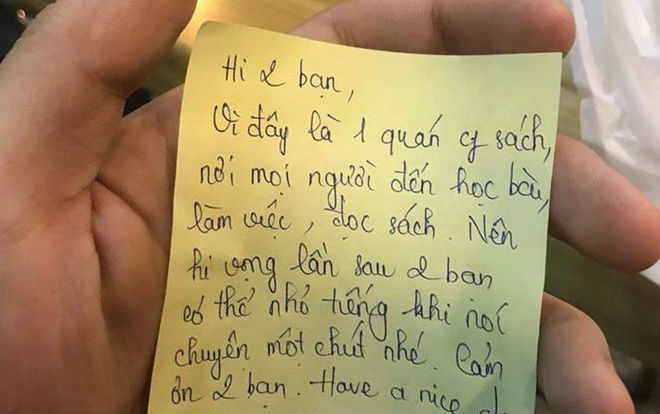 Hi 2 bạn,
Vì đây là 1 quán cf sách,
nơi mọi người đến học bài,
làm việc, đọc sách. Nên
hi vọng lần sau 2 bạn
có thể nhỏ tiếng khi nói
chuyện một chút nhé. Cảm
ơn 2 bạn. Have a nice